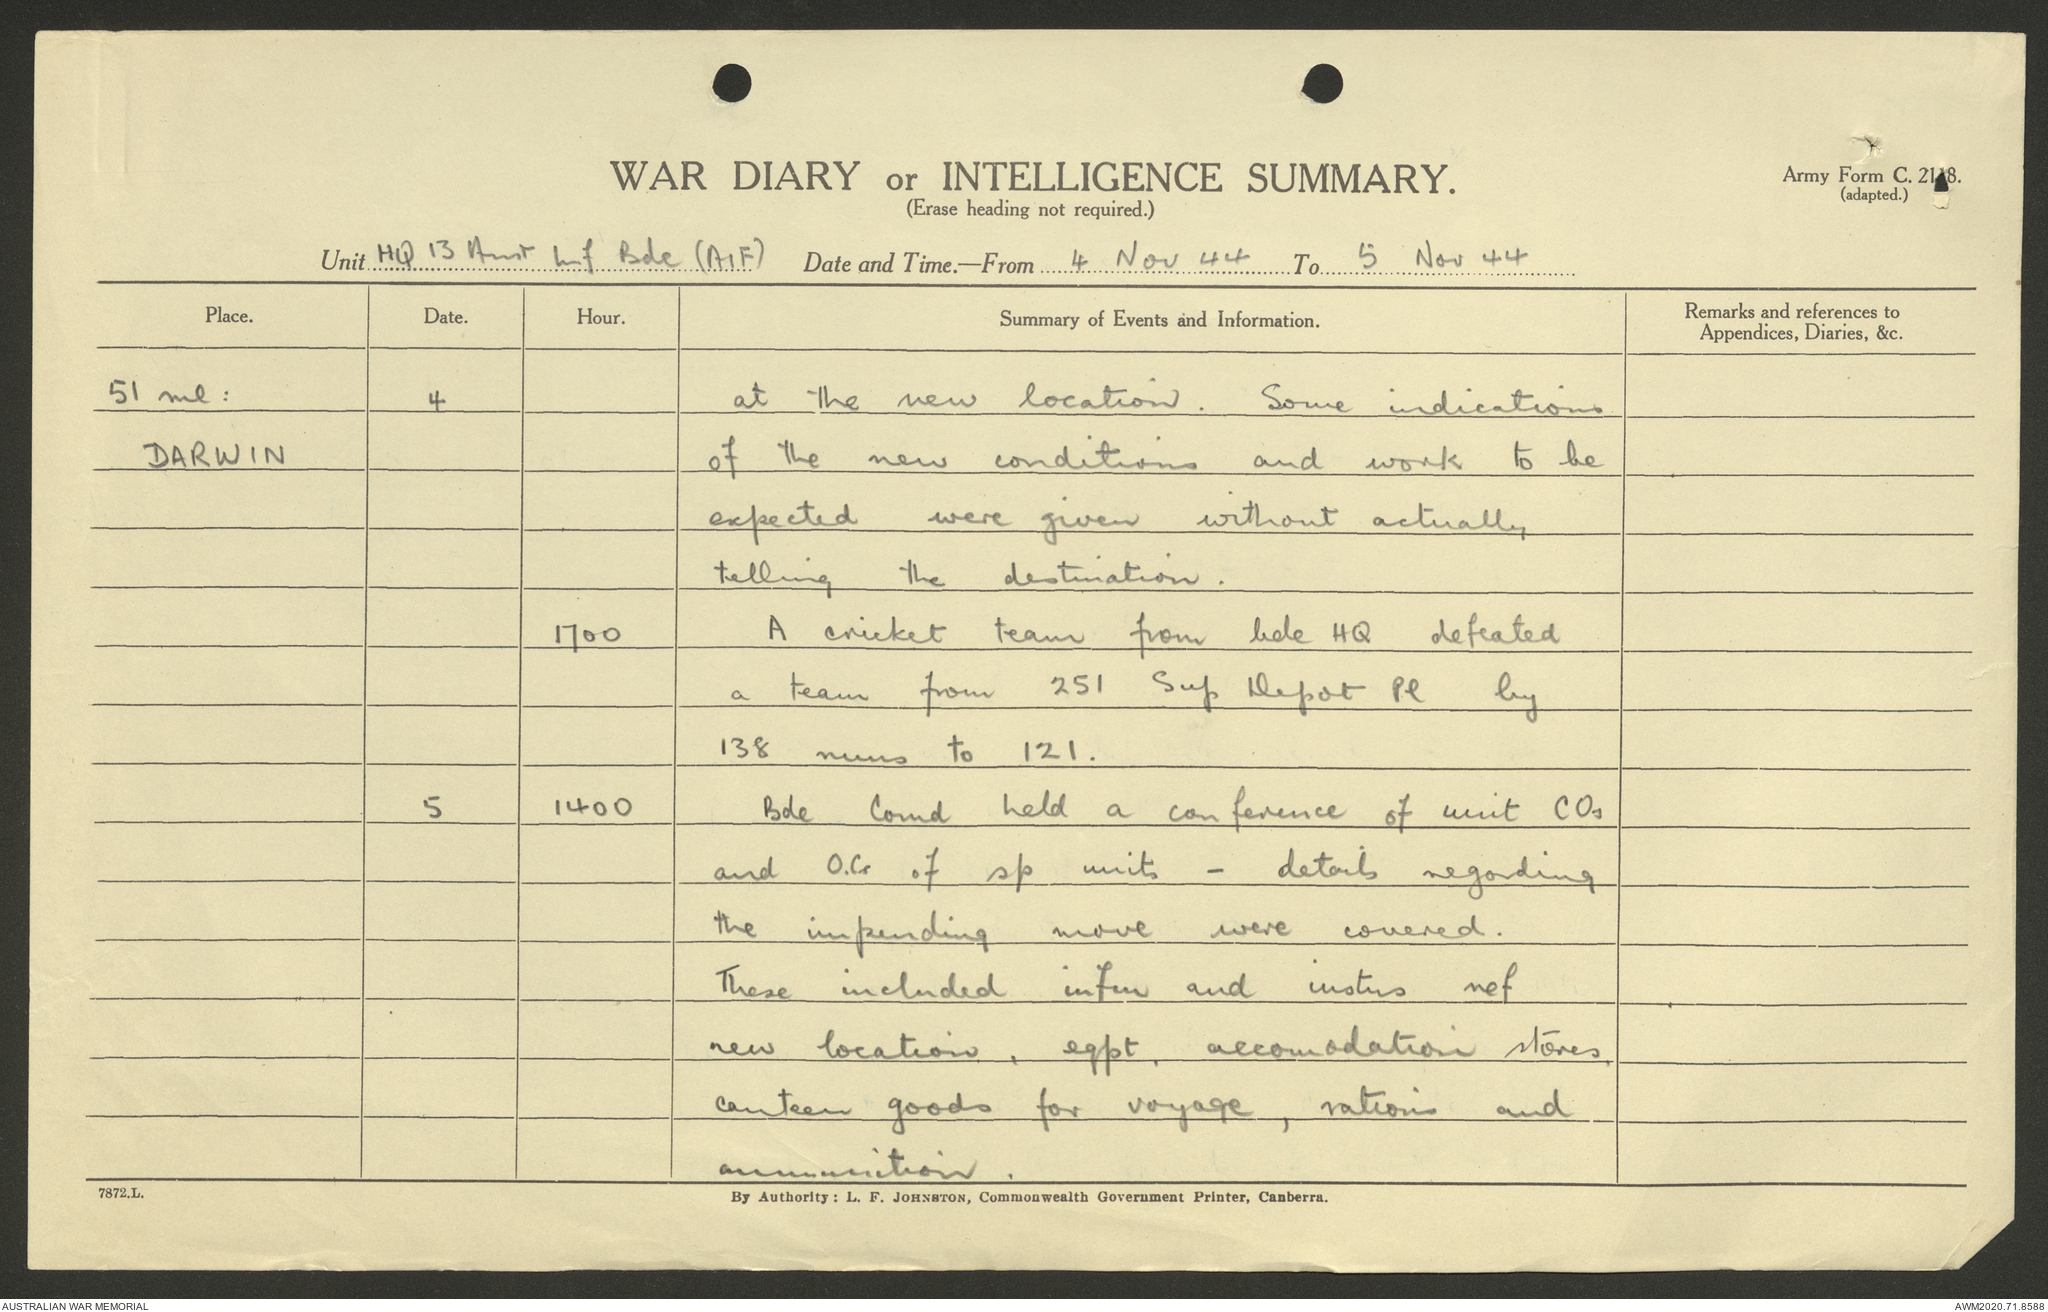 WAR DIARY or INTELLIGENCE SUMMARY.
Army Form C. 2118.
(adapted.)
(Erase heading not required.)
Unit HQ 13 Aust Inf Bde (AIF) Date and Time.—From 4 Nov 44 To 5 Nov 44
Place. Date. Hour. Summary of Events and Information. Remarks and references to
Appendices, Diaries, &c.
51 ml: 4 at the new location. Some indications
DARWIN of the new conditions and work to be
expected were given without actually
telling the destination.
1700 A cricket team from bde HQ defeated
a team from 251 Sup Depot Pl by
138 runs to 121.
5 1400 Bde Comd held a conference of unit COs
and O.C. of sp units - details regarding
the impending move were covered.
These included infm and instns ref
new location, eqpt, accomodation stores,
canteen goods for voyage, rations and
ammunition.
7872.L. By Authority: L. F. JOHNSTON, Commonwealth Government Printer, Canberra.
AUSTRALIAN WAR MEMORIAL AWM2020.71.8588